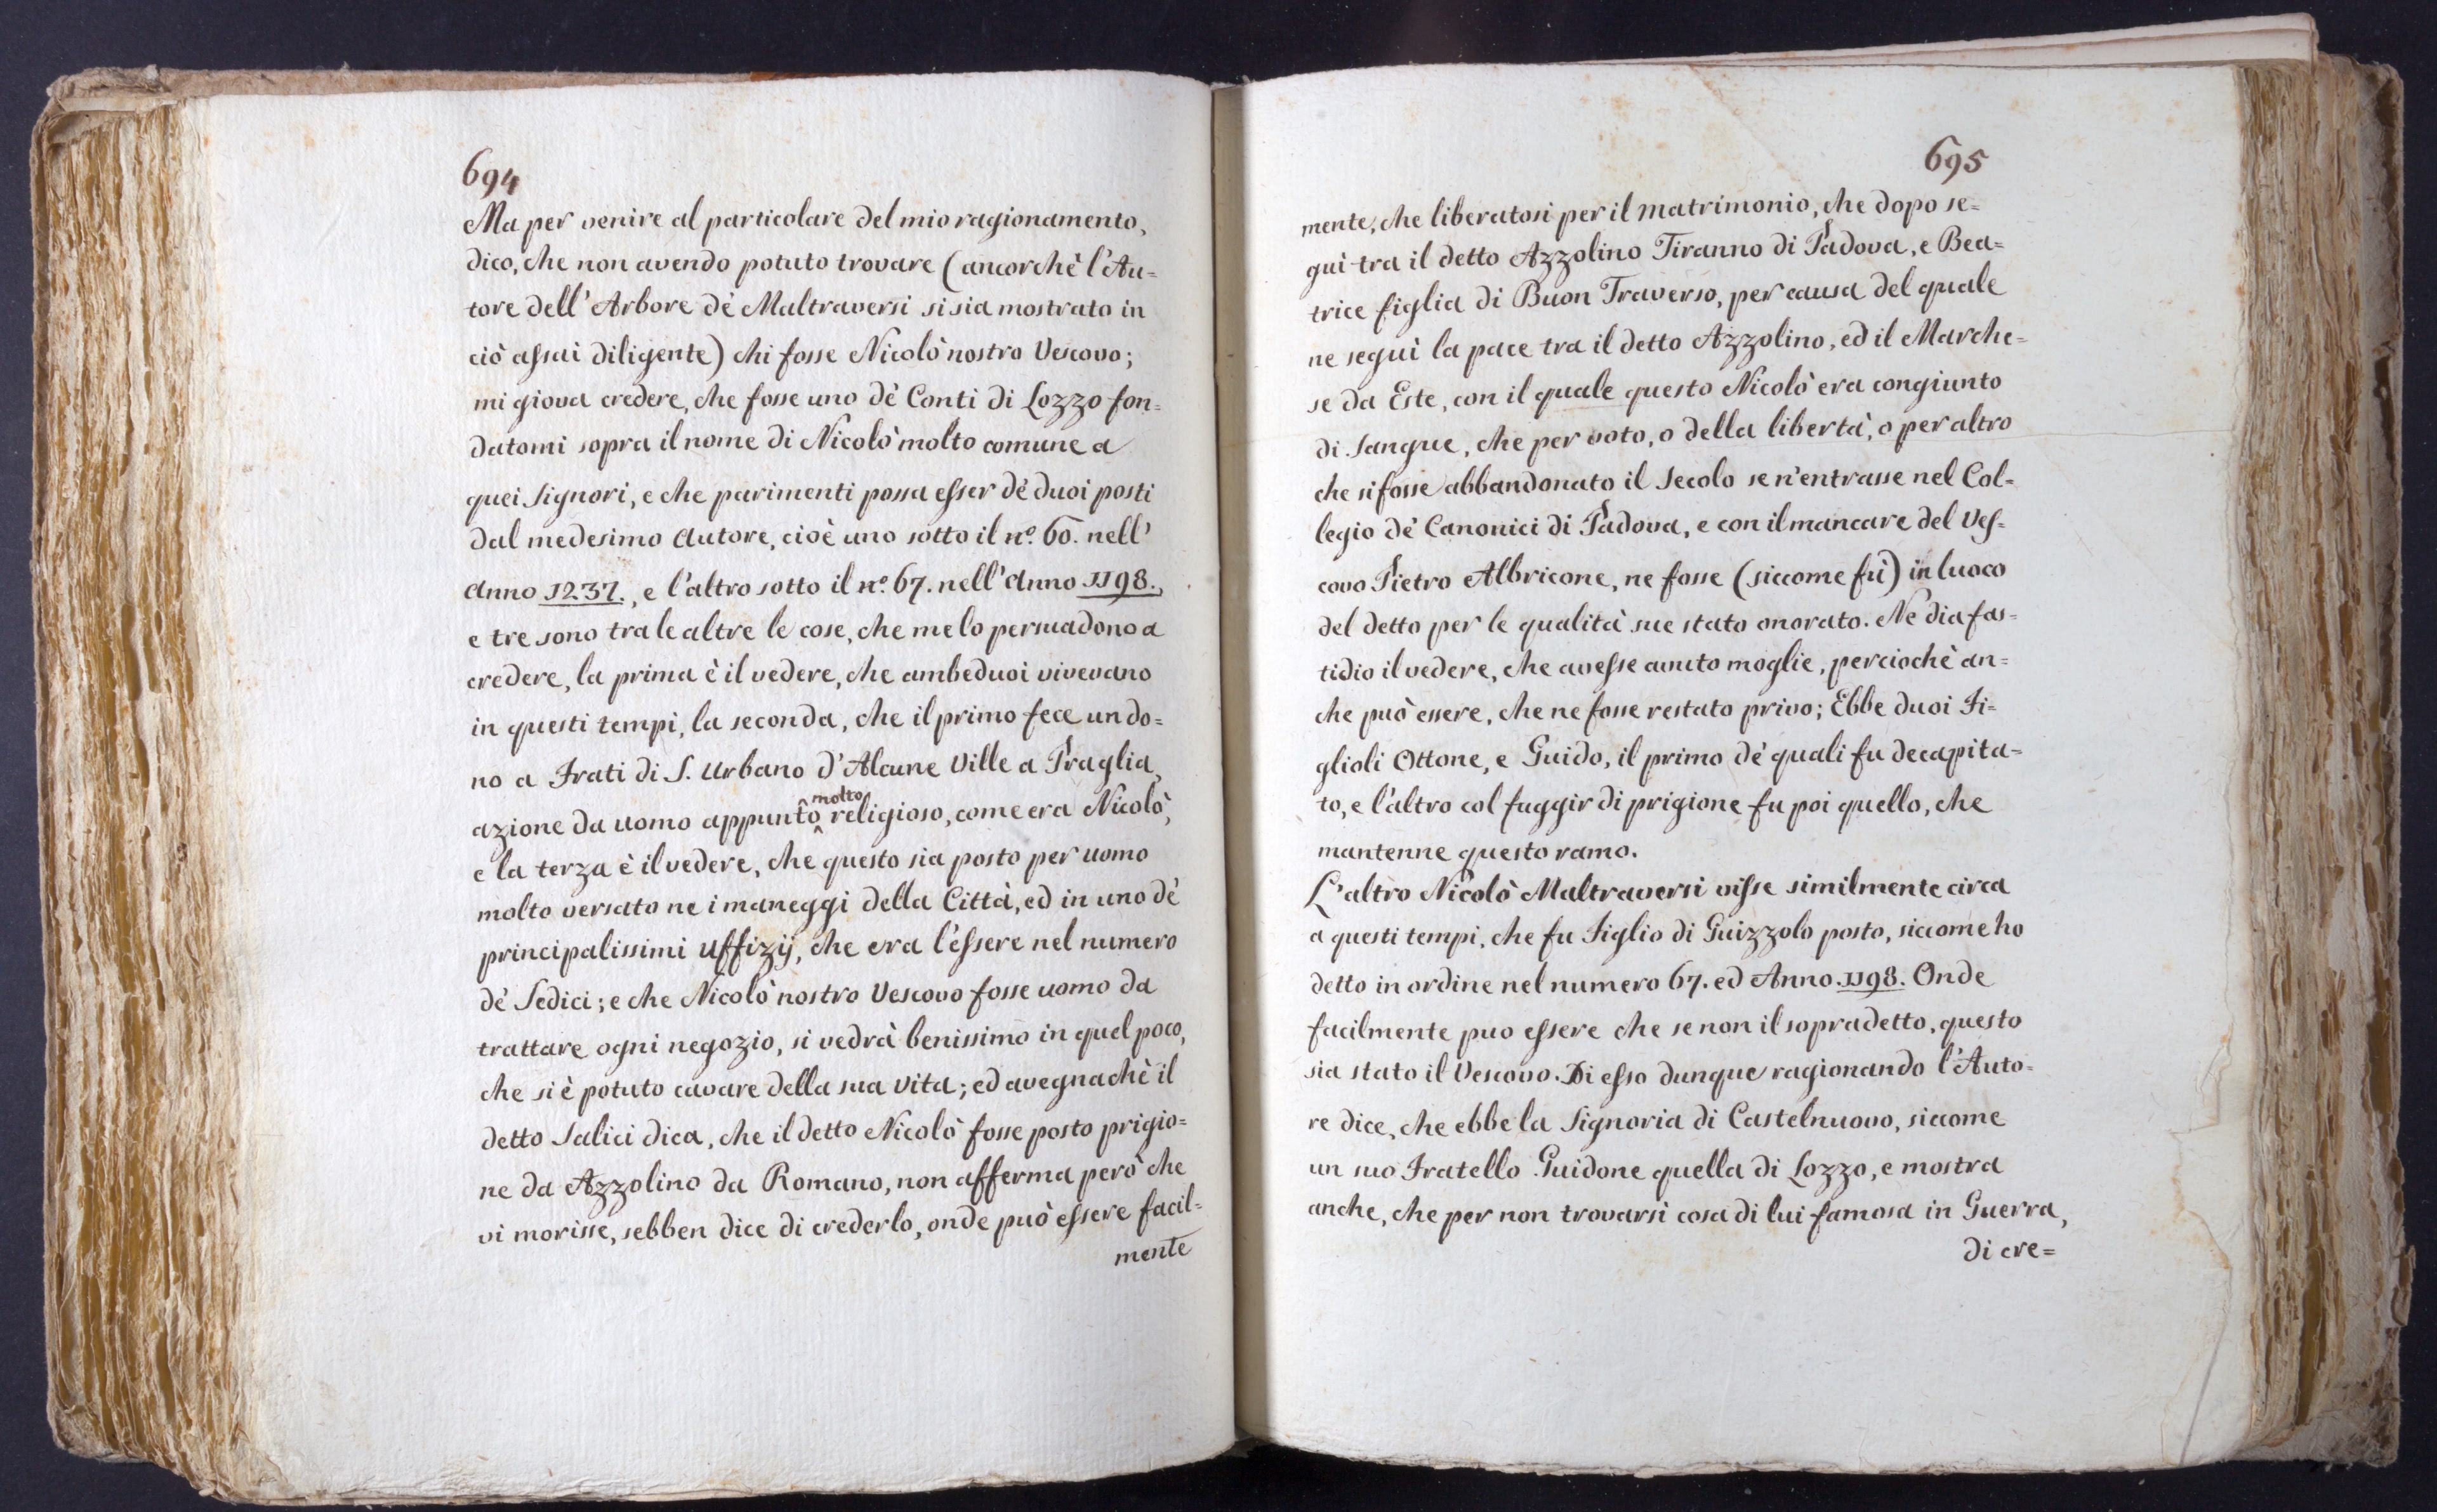 694
Ma per venire al particolare del mio ragionamento,
dico, che non avendo potuto trovare (ancorchè l'Au=
tore dell'Arbore dè Maltraversi si sia mostrato in
ciò assai diligente) chi fosse Nicolò nostro Vescovo;
mi giova credere, che fosse uno dè Conti di Lozzo fon=
datomi sopra il nome di Nicolò molto comune a
quei Signori, e che parimenti possa esser dè duoi posti
dal medesimo Autore, cioè uno sotto il nº. 60. nell'
Anno 1237., e l'altro sotto il nº. 67. nell'Anno 1198.,
e tre sono tra le altre le cose, che me lo persuadono a
credere, la prima è il vedere, che ambeduoi vivevano
in questi tempi, la seconda, che il primo fece un do=
no a Frati di S. Urbano d'Alcune Ville a Praglia,
azione da uomo appunto molto religioso, come era Nicolò,
e la terza è il vedere, che questo sia posto per uomo
molto versato ne i maneggi della Città, ed in uno dè
principalissimi Uffizij, che era l'essere nel numero
dè Sedici; e che Nicolò nostro Vescovo fosse uomo da
trattare ogni negozio, si vedrà benissimo in quel poco,
che si è potuto cavare della sua vita; ed avegnachè il
detto Salici dica, che il detto Nicolò fosse posto prigio=
ne da Azzolino da Romano, non afferma però che
vi morisse, sebben dice di crederlo, onde può essere facil=
mente
695
mente, che liberatosi per il matrimonio, che dopo se=
guì tra il detto Azzolino Tiranno di Padova, e Bea=
trice figlia di Buon Traverso, per causa del quale
ne seguì la pace tra il detto Azzolino, ed il Marche=
se da Este, con il quale questo Nicolò era congiunto
di Sangue, che per voto, o della libertà, o per altro
che si fosse abbandonato il Secolo se n'entrasse nel Col=
legio dè Canonici di Padova, e con il mancare del Ves=
covo Pietro Albricone, ne fosse (siccome fù) in luoco
del detto per le qualità sue stato onorato. Ne dia fas=
tidio il vedere, che avesse avuto moglie, perciochè an=
che può essere, che ne fosse restato privo; Ebbe duoi Fi=
glioli Ottone, e Guido, il primo dè quali fu decapita=
to, e l'altro col fuggir di prigione fu poi quello, che
mantenne questo ramo.
L'altro Nicolò Maltraversi visse similmente circa
a questi tempi, che fu Figlio di Guizzolo posto, siccome ho
detto in ordine nel numero 67. ed Anno. 1198. Onde
facilmente puo essere che se non il sopradetto, questo
sia stato il Vescovo. Di esso dunque ragionando l'Auto=
re dice, che ebbe la Signoria di Castelnuovo, siccome
un suo Fratello Guidone quella di Lozzo, e mostra
anche, che per non trovarsi cosa di lui famosa in Guerra,
di cre=